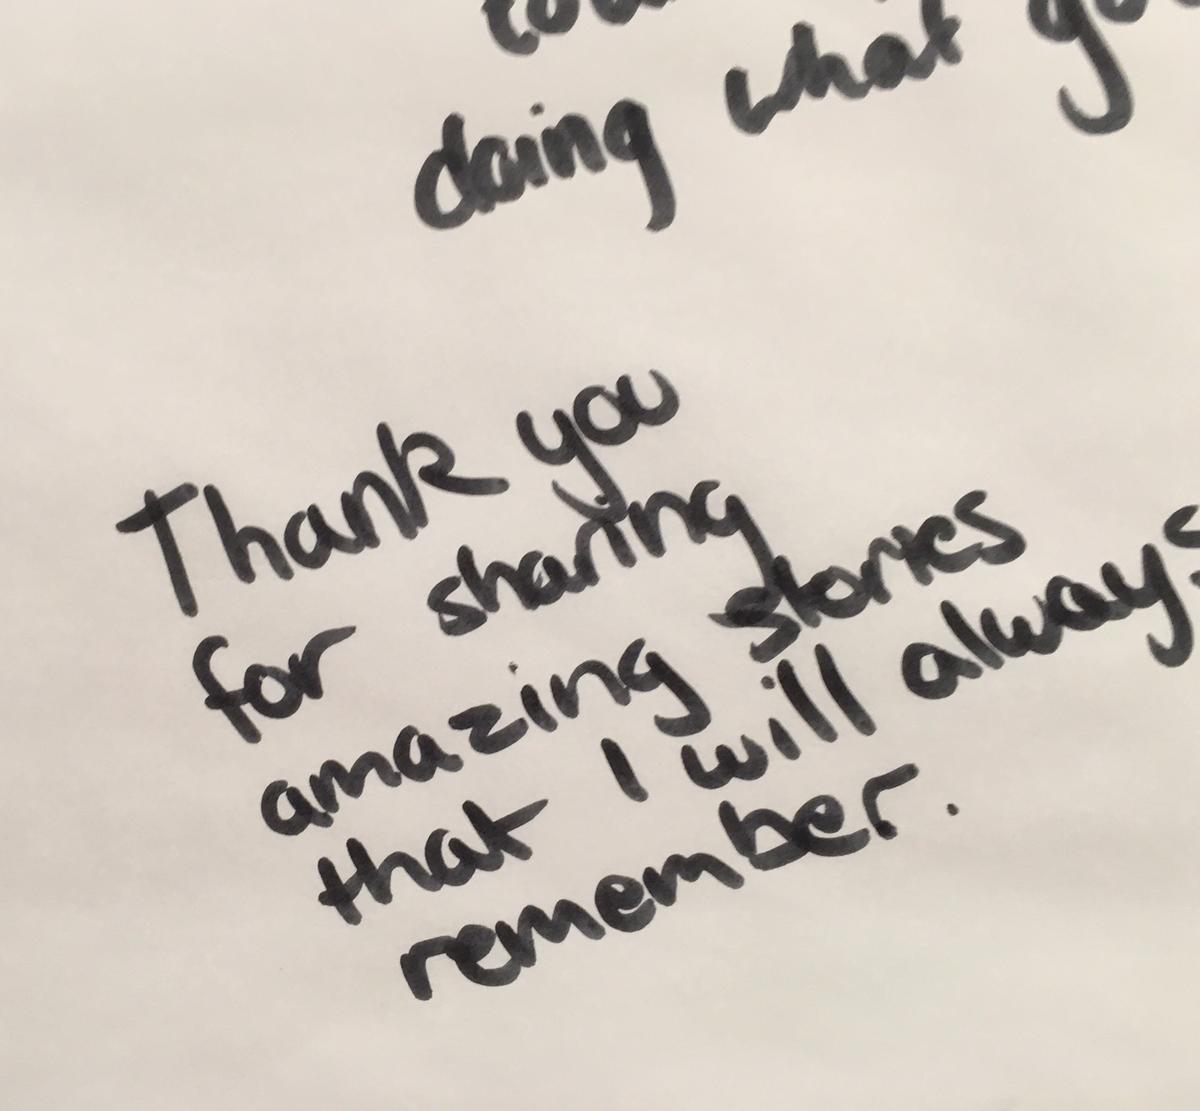 doing what
Thank you
for sharing
amazing stories
that I will always
remember.